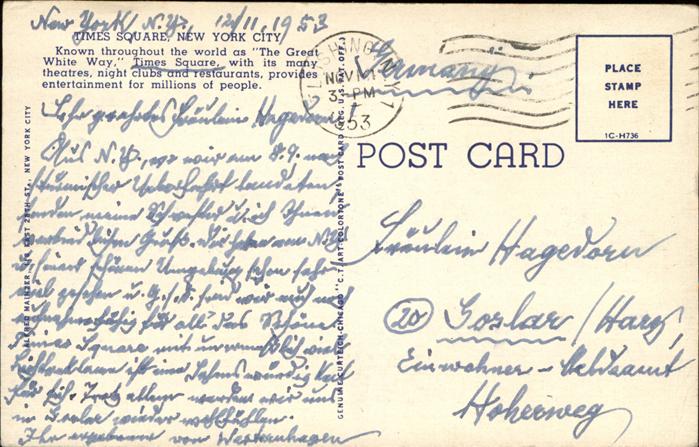 New York, N.Y., 12/11, 1953
TIMES SQUARE, NEW YORK CITY
Known throughout the world as "The Great
White Way," Times Square, with its many
theatres, night clubs and restaurants, provides
entertainment for millions of people.
Sehr geehrtes Fräulein Hagedorn!
Aus N.Y., wo wir am 8.9. nach
stürmischer Ueberfahrt landeten,
senden meine Schwester u. ich Ihnen
Grüße. Wir haben von N.Y.
u. seiner schönen Umgebung schon sehr
viel gesehen u. G.s.D. sind wir auch noch
für all das Schöne.
Times Square mit
Lichtreklamen ist eine Sehenswürdigkeit
für sich. Trotz allem werden wir uns
in Goslar wieder wohlfühlen.
Ihre ergebene von
ALFRED MAINZER, EAST 28TH ST., NEW YORK CITY
GENUINE CURTEICH-CHICAGO "C.T. ART-COLORTONE" POST CARD (REG. U.S. PAT. OFF.)
FLUSHING N.Y.
NOV 11
3 - PM
1953
Germany
PLACE
STAMP
HERE
1C-H736
POST CARD
Fräulein Hagedorn
(20) Goslar / Harz
Einwohner-Meldeamt
Hoherweg